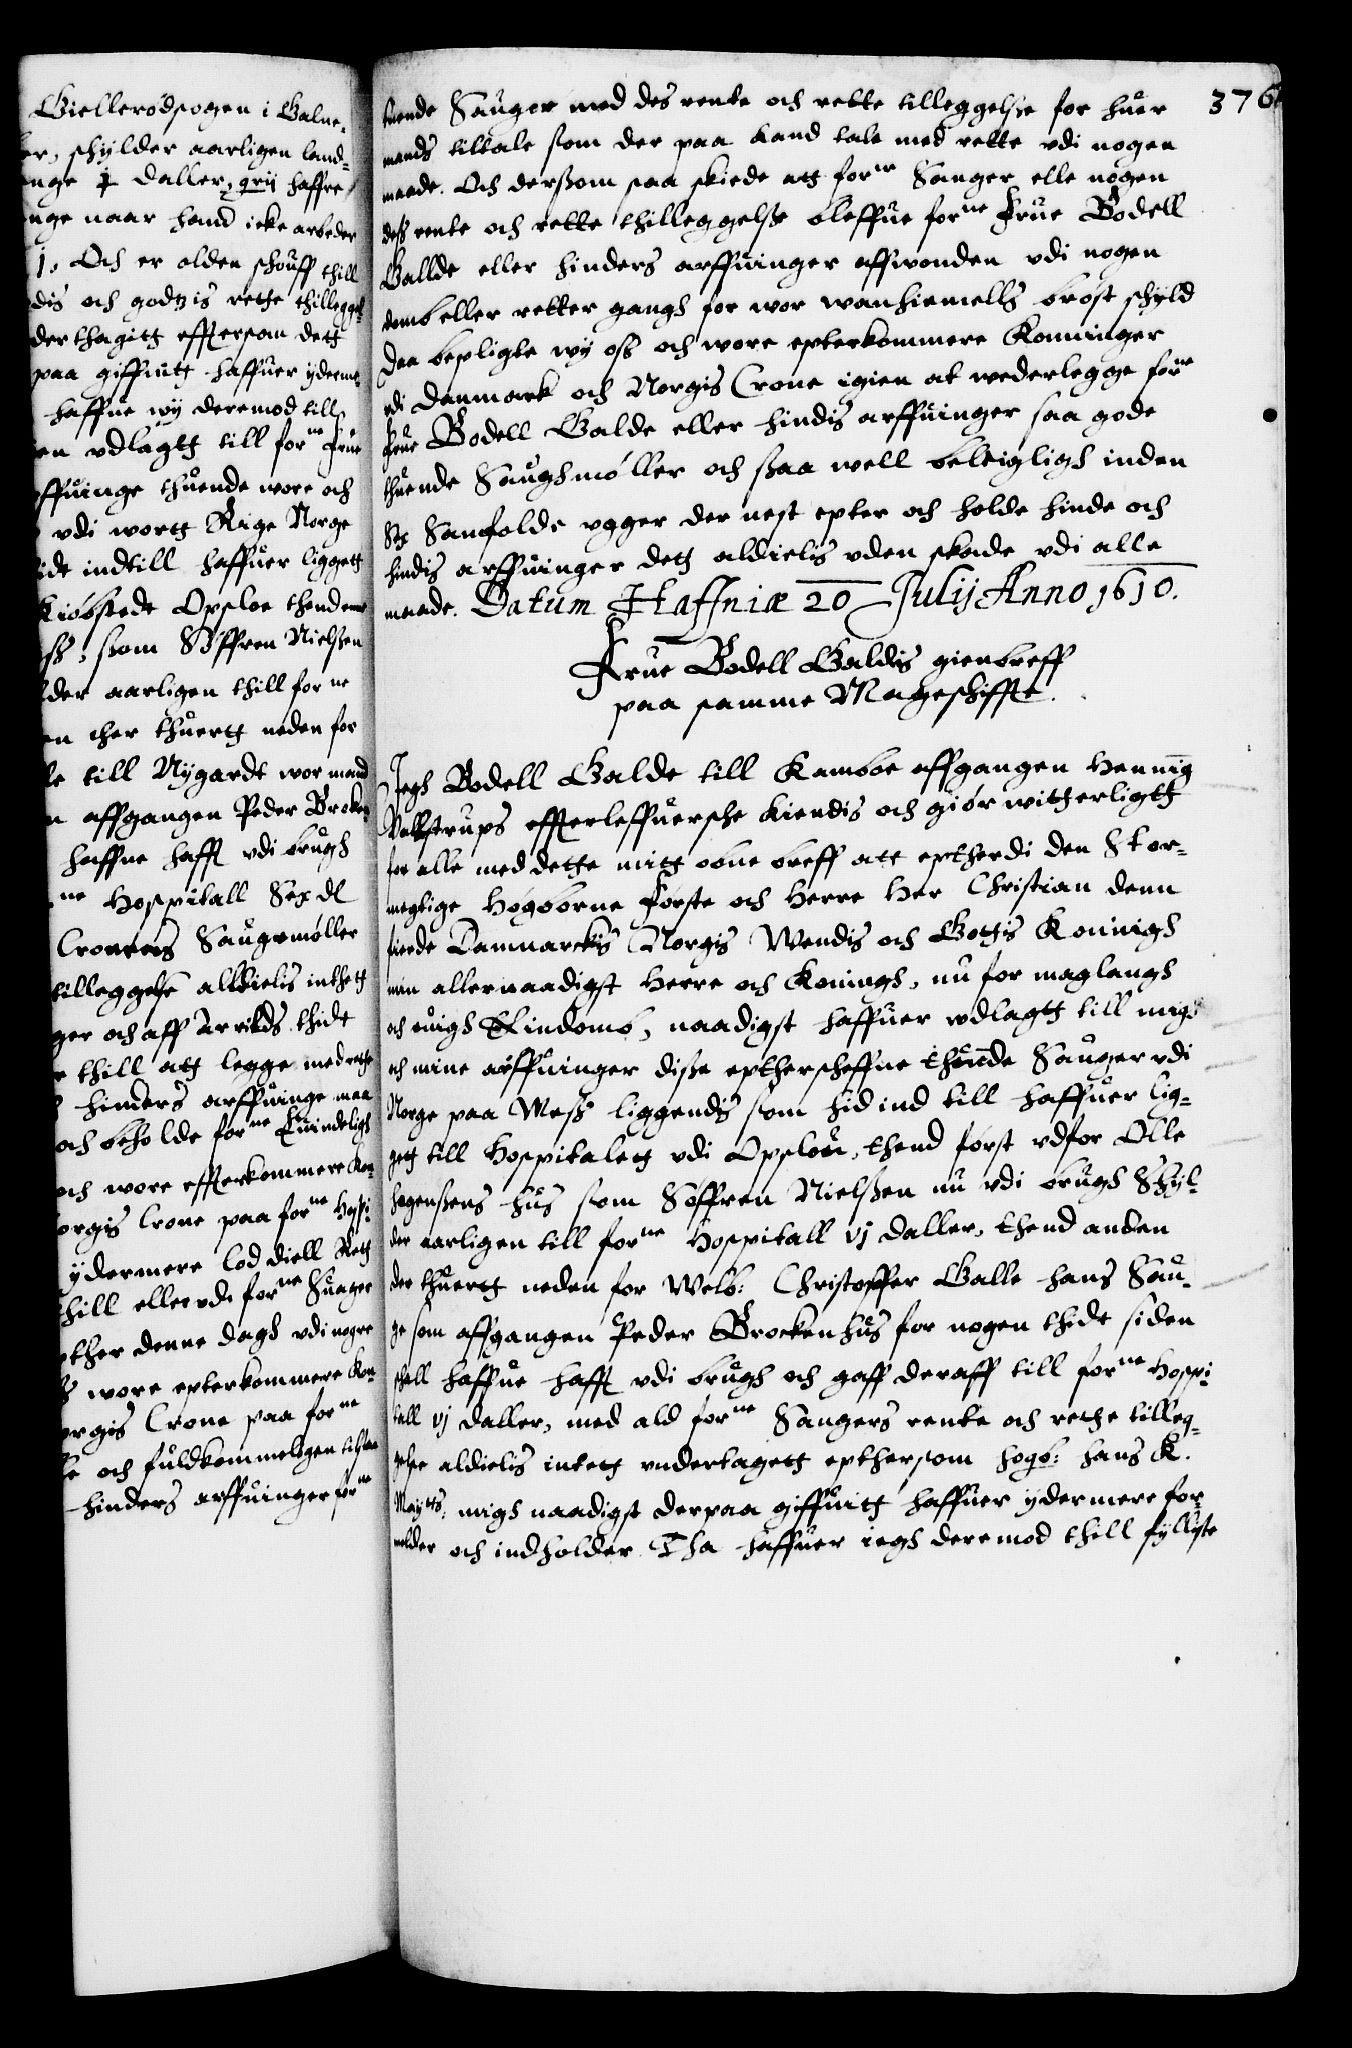 Giellerødsogen i Balne-
er, schylder aarligen land-
enge 1 daller, grij haffre
enge naar hand icke arbeder
1. Och er olden schouff thill
dis och godtzis rethe thilleggel-
derthagitt effterson dett
paa giffuitt haffuer ijderme
haffue wij deremod till
en vdlagtt till forne Frue
ffuinge thuende wore och
vdi wortt Rige Norge
idt indtill haffuer liggett
Kiøbstede Opsloe thend ene
ss, som Søffren Nielssen
lder aarligen thill forne
en ther thuertt neden for
le till Nygardt wor mand
n affgangen Peder Brocken
haffue hafft vdi brugh
ne Hospitall Sex dl
Cronens Saugemøller
tilleggelse alldielis inthett
ger och aff Arrilds thide
r thill att legge med rethe
hinders arffuinge maa
och beholde forne Euindeligh
och wore effterkommere Kon-
orgis Crone paa forne Hospi-
ydermere lod diell Rett
thill eller vdi forne Suager
epther denne dagh vdi nogre
s wore epterkommere Kon-
orgis Crone paa forne
e och fuldkommeligen tilstaa
hinders arffuinger forne
376
tuende Sauger med des rente och rette tilleggelsse for huer
mands tiltale som der paa kand tale med rette vdi nogen
maade. Och derssom saa skiede att forne Sauger elle nogen
dess rente och rette thilleggelsse bleffue forne Frue Bodell
Gallde eller hinders arffuinger affwonden vdi nogen
domb eller retter gangh for wor wanhiemells brøst schyld
Daa bepligte wy oss och wore epterkommere Konninger
vdi Danmark och Norgis Crone igien at wederlegge forne
Frue Bodell Galde eller hindis arffuinger saa gode
thuende Saughmøller och ssaa well beleigligh inden
Sex Samfolde vgger der nest epter och holde hinde och
hindis arffuinger dett aldielis vden skade vdi alle
maade. Datum Haffniæ 20 Julij Anno 1610.
Frue Bodell Galdis gienbreff
paa samme Mageschiffte.
Jegh Bodell Galde till Kamboe affgangen Hennig
Valkstrups effterleffuersche kiendis och giør witterligtt
for alle med dette mitt obne breff att eptherdi den Stor-
megtige Høgborne Første och Herre Her Christian denn
fierde Danmarckis Norgis Wendis och Gottis Koningh
min allernaadigst Herre och Konningh, nu for maglaugh
och euigh Eindomb, naadigst haffuer vdlagtt till migh
och mine arffuinger disse eptherscheffne thuende Sauger vdi
Norge paa Moss liggendis som hid ind till haffuer lig-
gett till Hospitalett vdi Opsloe, thend først vdfor Olle
hagenssens hus som Søffren Nielssen nu vdi brugh Skyl-
der aarligen till forne Hospitall vj daller, thend anden
der thuertt neden for Welb: Christoffer Galle hans Sau-
ge som affgangen Peder Brockenhus for nogen thidt siden
schall haffue hafft vdi brugh och gaff deraff till forne Hospi-
tall vj daller, med ald forne Saugers rente och rethe tilleg-
gelse aldielis intett vndertagett epthersom høgb: hans K.
Maytts: migh naadigst derpaa giffuitt haffuer ydermere for-
melder och indholder. Tha haffuer iegh deremod thill fylliste